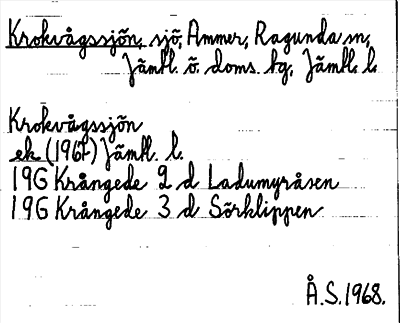 Krokvågssjön, sjö, Ammer, Ragunda sn,
Jämtl. ö. doms. hg, Jämtl. l.
Krokvågssjön
ek (1967) Jämtl. l.
19G Krångede 2 d Ladumyråsen
19G Krångede 3 d Sörklippen
Å.S.1968.